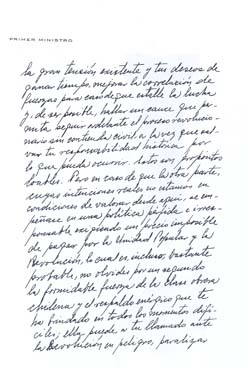 PRIMER MINISTRO
la gran tensión existente y tus deseos de
ganar tiempo, mejorar la correlación de
fuerzas para caso de que estalle la lucha
y, de ser posible, hallar un cauce que per-
mita seguir adelante el proceso revolucio-
nario sin contienda civil, a la vez que sal-
var tu responsabilidad histórica por
lo que pueda ocurrir. Estos son propósitos
loables. Pero en caso de que la otra parte,
cuyas intenciones reales no estamos en
condiciones de valorar desde aquí, se em-
peñase en una política pérfida e irres-
ponsable exigiendo un precio imposible
de pagar por la Unidad Popular y la
Revolución, lo cual es, incluso, bastante
probable, no olvides por un segundo
la formidable fuerza de la clase obrera
chilena y el respaldo enérgico que te
ha brindado en todos los momentos difí-
ciles; ella puede, a tu llamado ante
la Revolución en peligro, paralizar